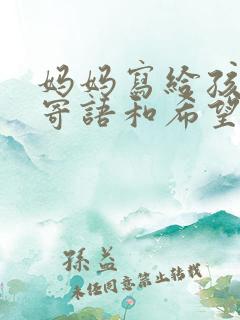 妈妈寫給孩
寄語和希望
孫益
未经同意禁止转载